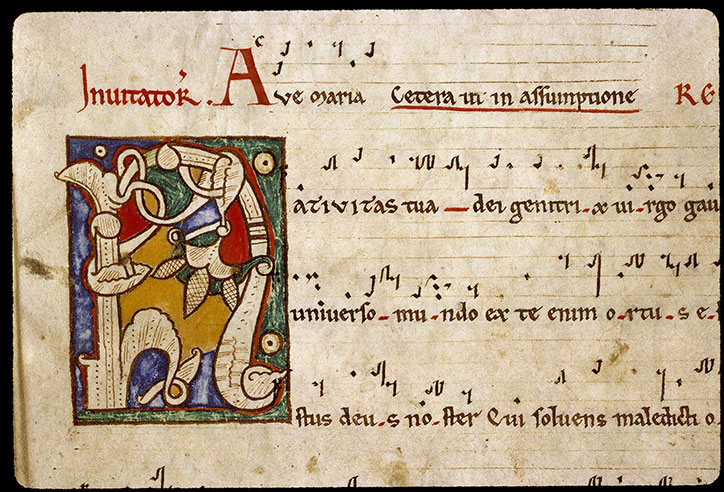 Inuitator̄. Ave maria Cetera ut in assumptione RE
NATIVITAS tua — dei genitri-x ui-rgo gau
universo-mu-ndo ex te enim o-rtu-s e-
stus deu-s no-ster Qui soluens maledicti o